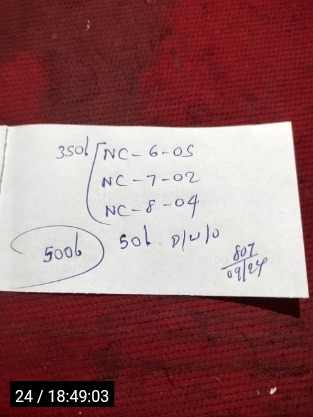 350/ NC-6-05
NC-7-02
NC-8-04
50/ D/W/O
500/
807
09/24
24 / 18:49:03